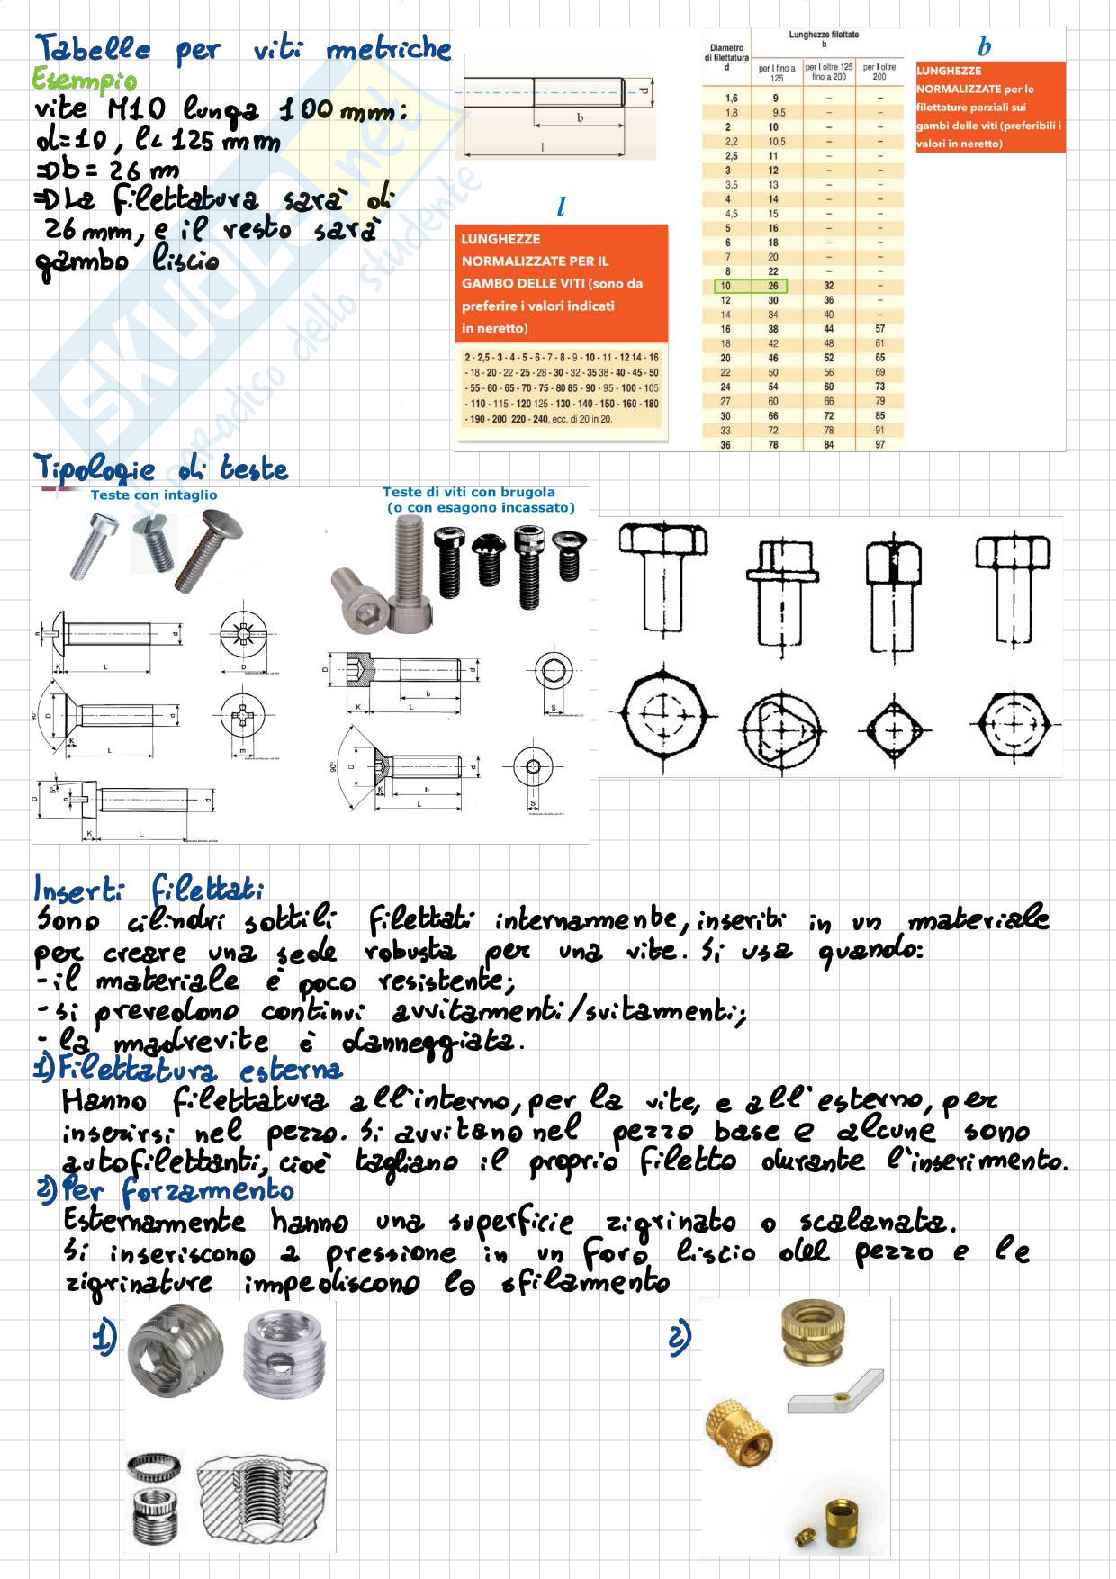 Tabelle per viti metriche
Esempio
vite M10 lunga 100 mm:
d=10, l< 125 mm
=D b = 26 m
=D La filettatura sarà di
26 mm, e il resto sarà
gambo liscio
d
b
l
l
LUNGHEZZE
NORMALIZZATE PER IL
GAMBO DELLE VITI (sono da
preferire i valori indicati
in neretto)
2 - 2,5 - 3 - 4 - 5 - 6 - 7 - 8 - 9 - 10 - 11 - 12 14 - 16
- 18 - 20 - 22 - 25 - 28 - 30 - 32 - 35 38 - 40 - 45 - 50
- 55 - 60 - 65 - 70 - 75 - 80 85 - 90 - 95 - 100 - 105
- 110 - 115 - 120 125 - 130 - 140 - 150 - 160 - 180
- 190 - 200 220 - 240, ecc. di 20 in 20.
Diametro di filettatura d
Lunghezze filettate b
per l fino a 125
per l oltre 125 fino a 200
per l oltre 200
1,6 9 – –
1,8 9.5 – –
2 10 – –
2,2 10,5 – –
2,5 11 – –
3 12 – –
3,5 13 – –
4 14 – –
4,5 15 – –
5 16 – –
6 18 – –
7 20 – –
8 22 – –
10 26 32 –
12 30 36 –
14 34 40 –
16 38 44 57
18 42 48 61
20 46 52 65
22 50 56 69
24 54 60 73
27 60 66 79
30 66 72 85
33 72 78 91
36 78 84 97
b
LUNGHEZZE
NORMALIZZATE per le
filettature parziali sui
gambi delle viti (preferibili i
valori in neretto)
Tipologie di teste
Teste con intaglio
Teste di viti con brugola
(o con esagono incassato)
n
d
L
D
D
d
K
L
m
D
5°
n
d
K
L
D
d
b
K
L
S
90°
D
d
K
b
L
Inserti filettati
Sono cilindri sottili filettati internamente, inseriti in un materiale
per creare una sede robusta per una vite. Si usa quando:
- il materiale è poco resistente;
- si prevedono continui avvitamenti/svitamenti;
- la madrevite è danneggiata.
1) Filettatura esterna
Hanno filettatura all'interno, per la vite, e all'esterno, per
inserirsi nel pezzo. Si avvitano nel pezzo base e alcune sono
autofilettanti, cioè tagliano il proprio filetto durante l'inserimento.
2) Per forzamento
Esternamente hanno una superficie zigrinato o scalanata.
Si inseriscono a pressione in un foro liscio del pezzo e le
zigrinature impediscono lo sfilamento
1)
2)